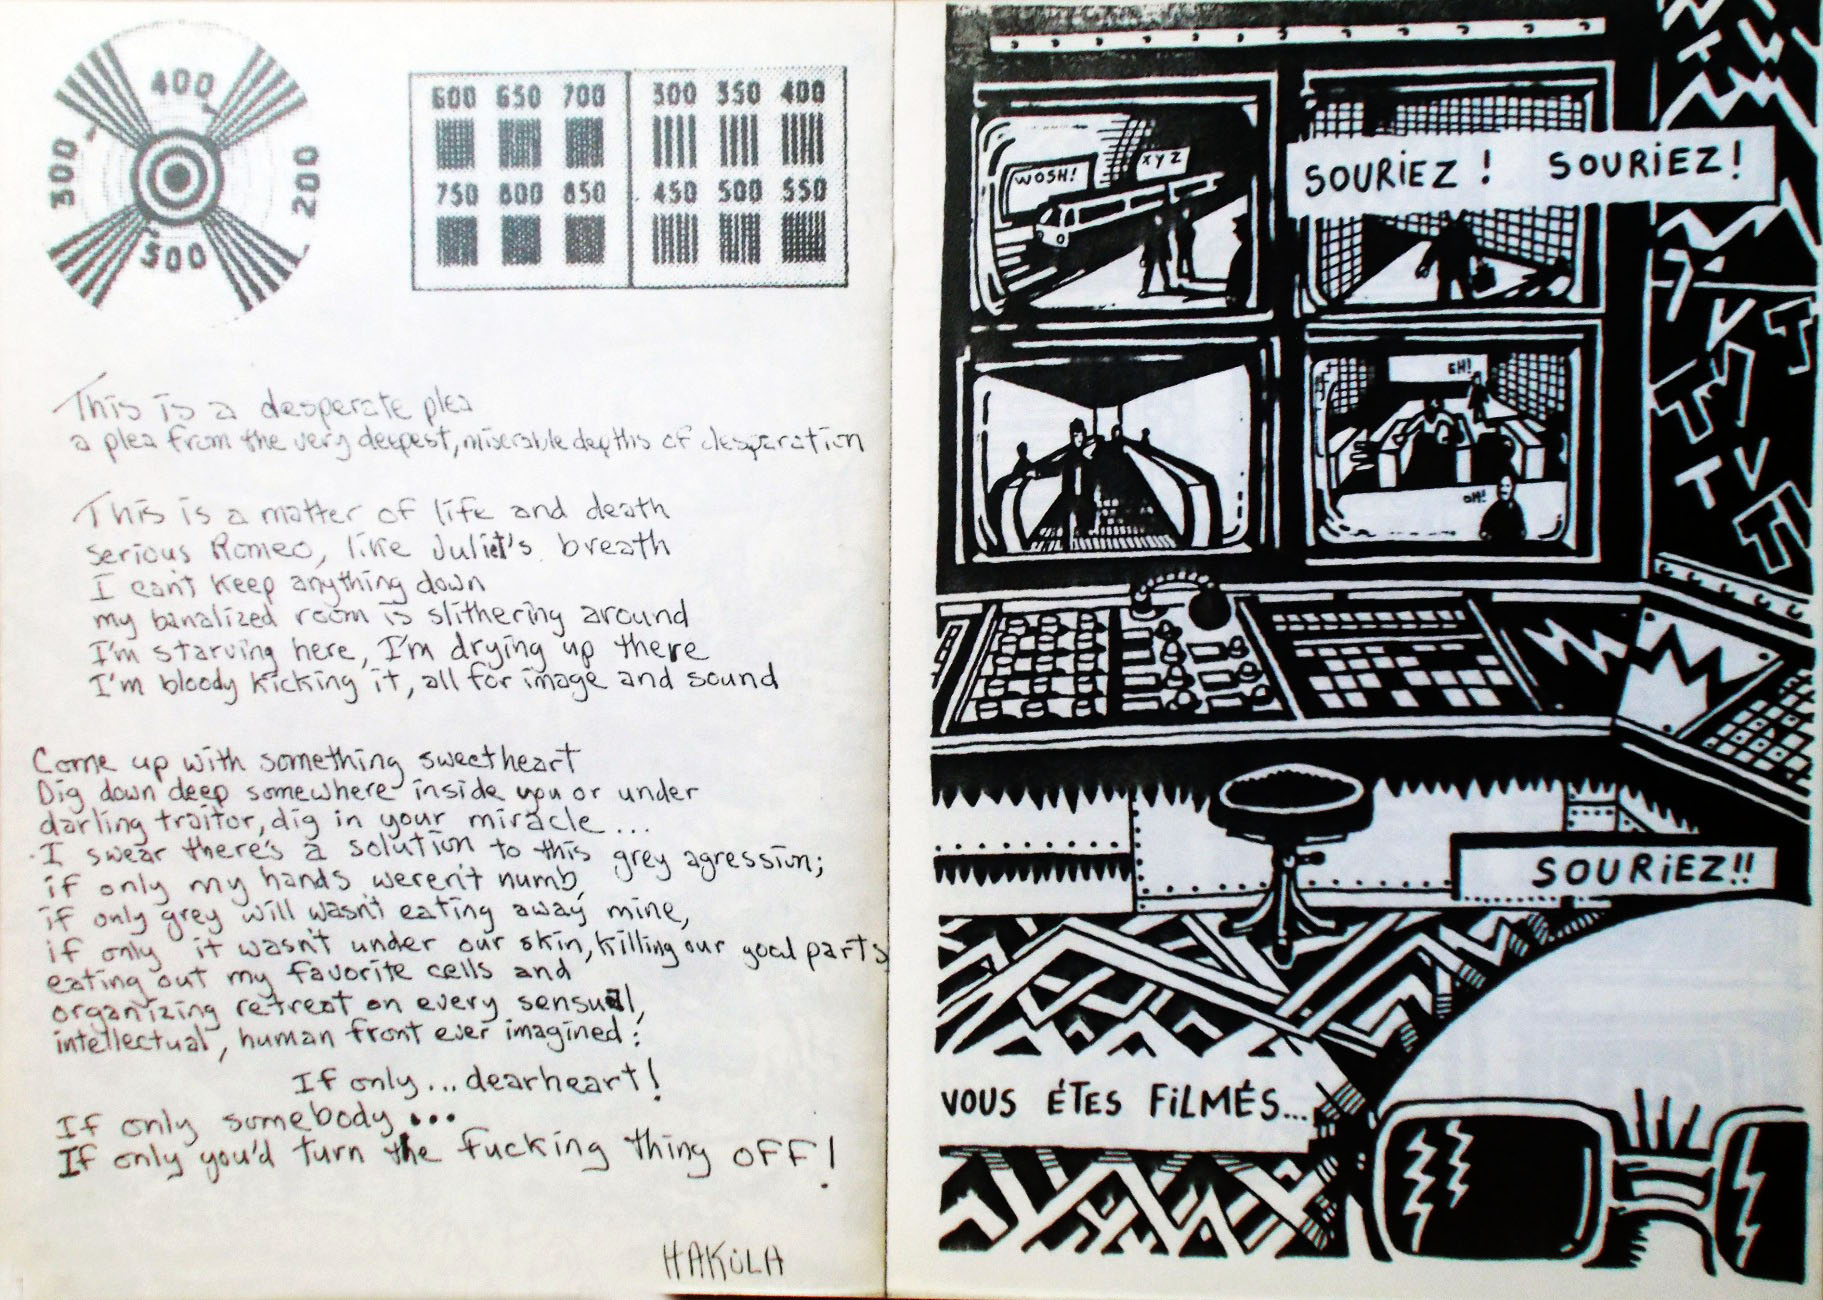 400
300
200
500
600 650 700 300 350 400
750 800 850 450 500 550
This is a desperate plea
a plea from the very deepest, miserable depths of desperation
This is a matter of life and death
serious Romeo, like Juliet's breath
I can't keep anything down
my banalized room is slithering around
I'm starving here, I'm drying up there
I'm bloody kicking it, all for image and sound
Come up with something sweetheart
Dig down deep somewhere inside you or under
darling traitor, dig in your miracle...
I swear there's a solution to this grey agression;
if only my hands weren't numb,
if only grey will wasn't eating away mine,
if only it wasn't under our skin, killing our good parts
eating out my favorite cells and
organizing retreat on every sensual,
intellectual, human front ever imagined:
If only... dearheart!
If only somebody...
If only you'd turn the fucking thing OFF!
HAKULA
WOSH!
XYZ
SOURiEZ! SOURiEZ!
EH!
OH!
TV
TV
TV
TV
SOURiEZ!!
VOUS ÉTES FiLMÉS...